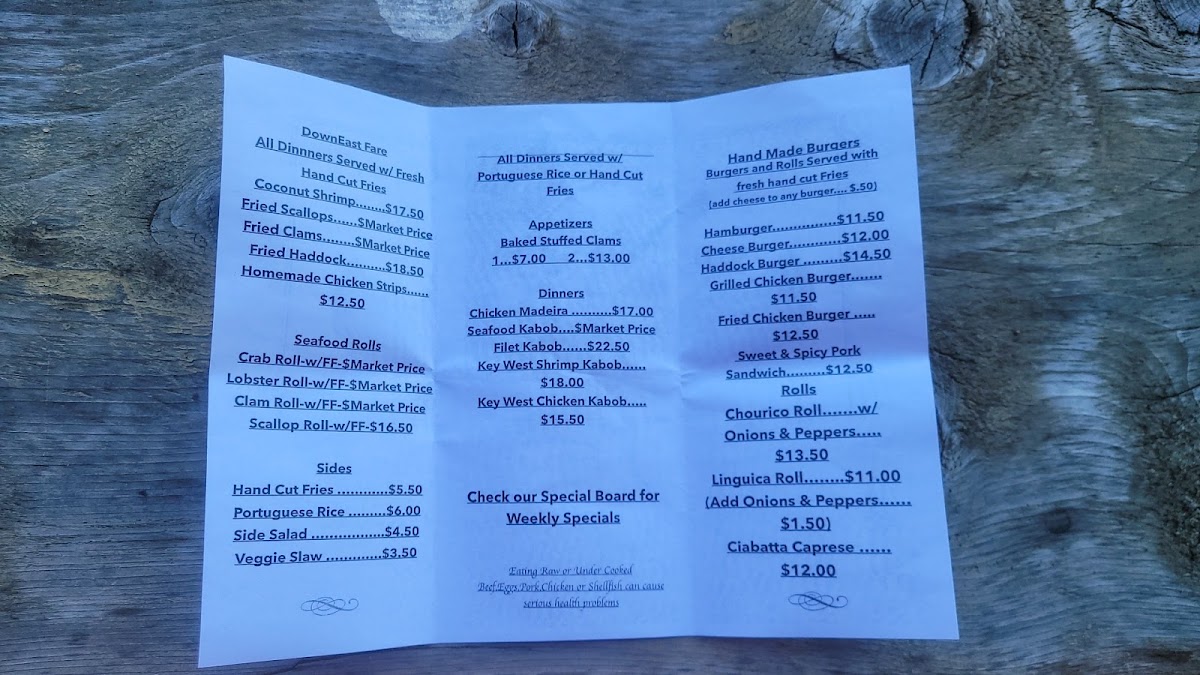 DownEast Fare
All Dinnners Served w/ Fresh
Hand Cut Fries
Coconut Shrimp........$17.50
Fried Scallops......$Market Price
Fried Clams........$Market Price
Fried Haddock..........$18.50
Homemade Chicken Strips......
$12.50
Seafood Rolls
Crab Roll-w/FF-$Market Price
Lobster Roll-w/FF-$Market Price
Clam Roll-w/FF-$Market Price
Scallop Roll-w/FF-$16.50
Sides
Hand Cut Fries ............$5.50
Portuguese Rice .........$6.00
Side Salad .................$4.50
Veggie Slaw .............$3.50
All Dinners Served w/
Portuguese Rice or Hand Cut
Fries
Appetizers
Baked Stuffed Clams
1...$7.00 2...$13.00
Dinners
Chicken Madeira ..........$17.00
Seafood Kabob....$Market Price
Filet Kabob......$22.50
Key West Shrimp Kabob......
$18.00
Key West Chicken Kabob.....
$15.50
Check our Special Board for
Weekly Specials
Eating Raw or Under Cooked
Beef,Eggs,Pork,Chicken or Shellfish can cause
serious health problems
Hand Made Burgers
Burgers and Rolls Served with
fresh hand cut Fries
(add cheese to any burger.... $.50)
Hamburger...............$11.50
Cheese Burger............$12.00
Haddock Burger .........$14.50
Grilled Chicken Burger.......
$11.50
Fried Chicken Burger .....
$12.50
Sweet & Spicy Pork
Sandwich.........$12.50
Rolls
Chourico Roll.......w/
Onions & Peppers.....
$13.50
Linguica Roll........$11.00
(Add Onions & Peppers......
$1.50)
Ciabatta Caprese ......
$12.00